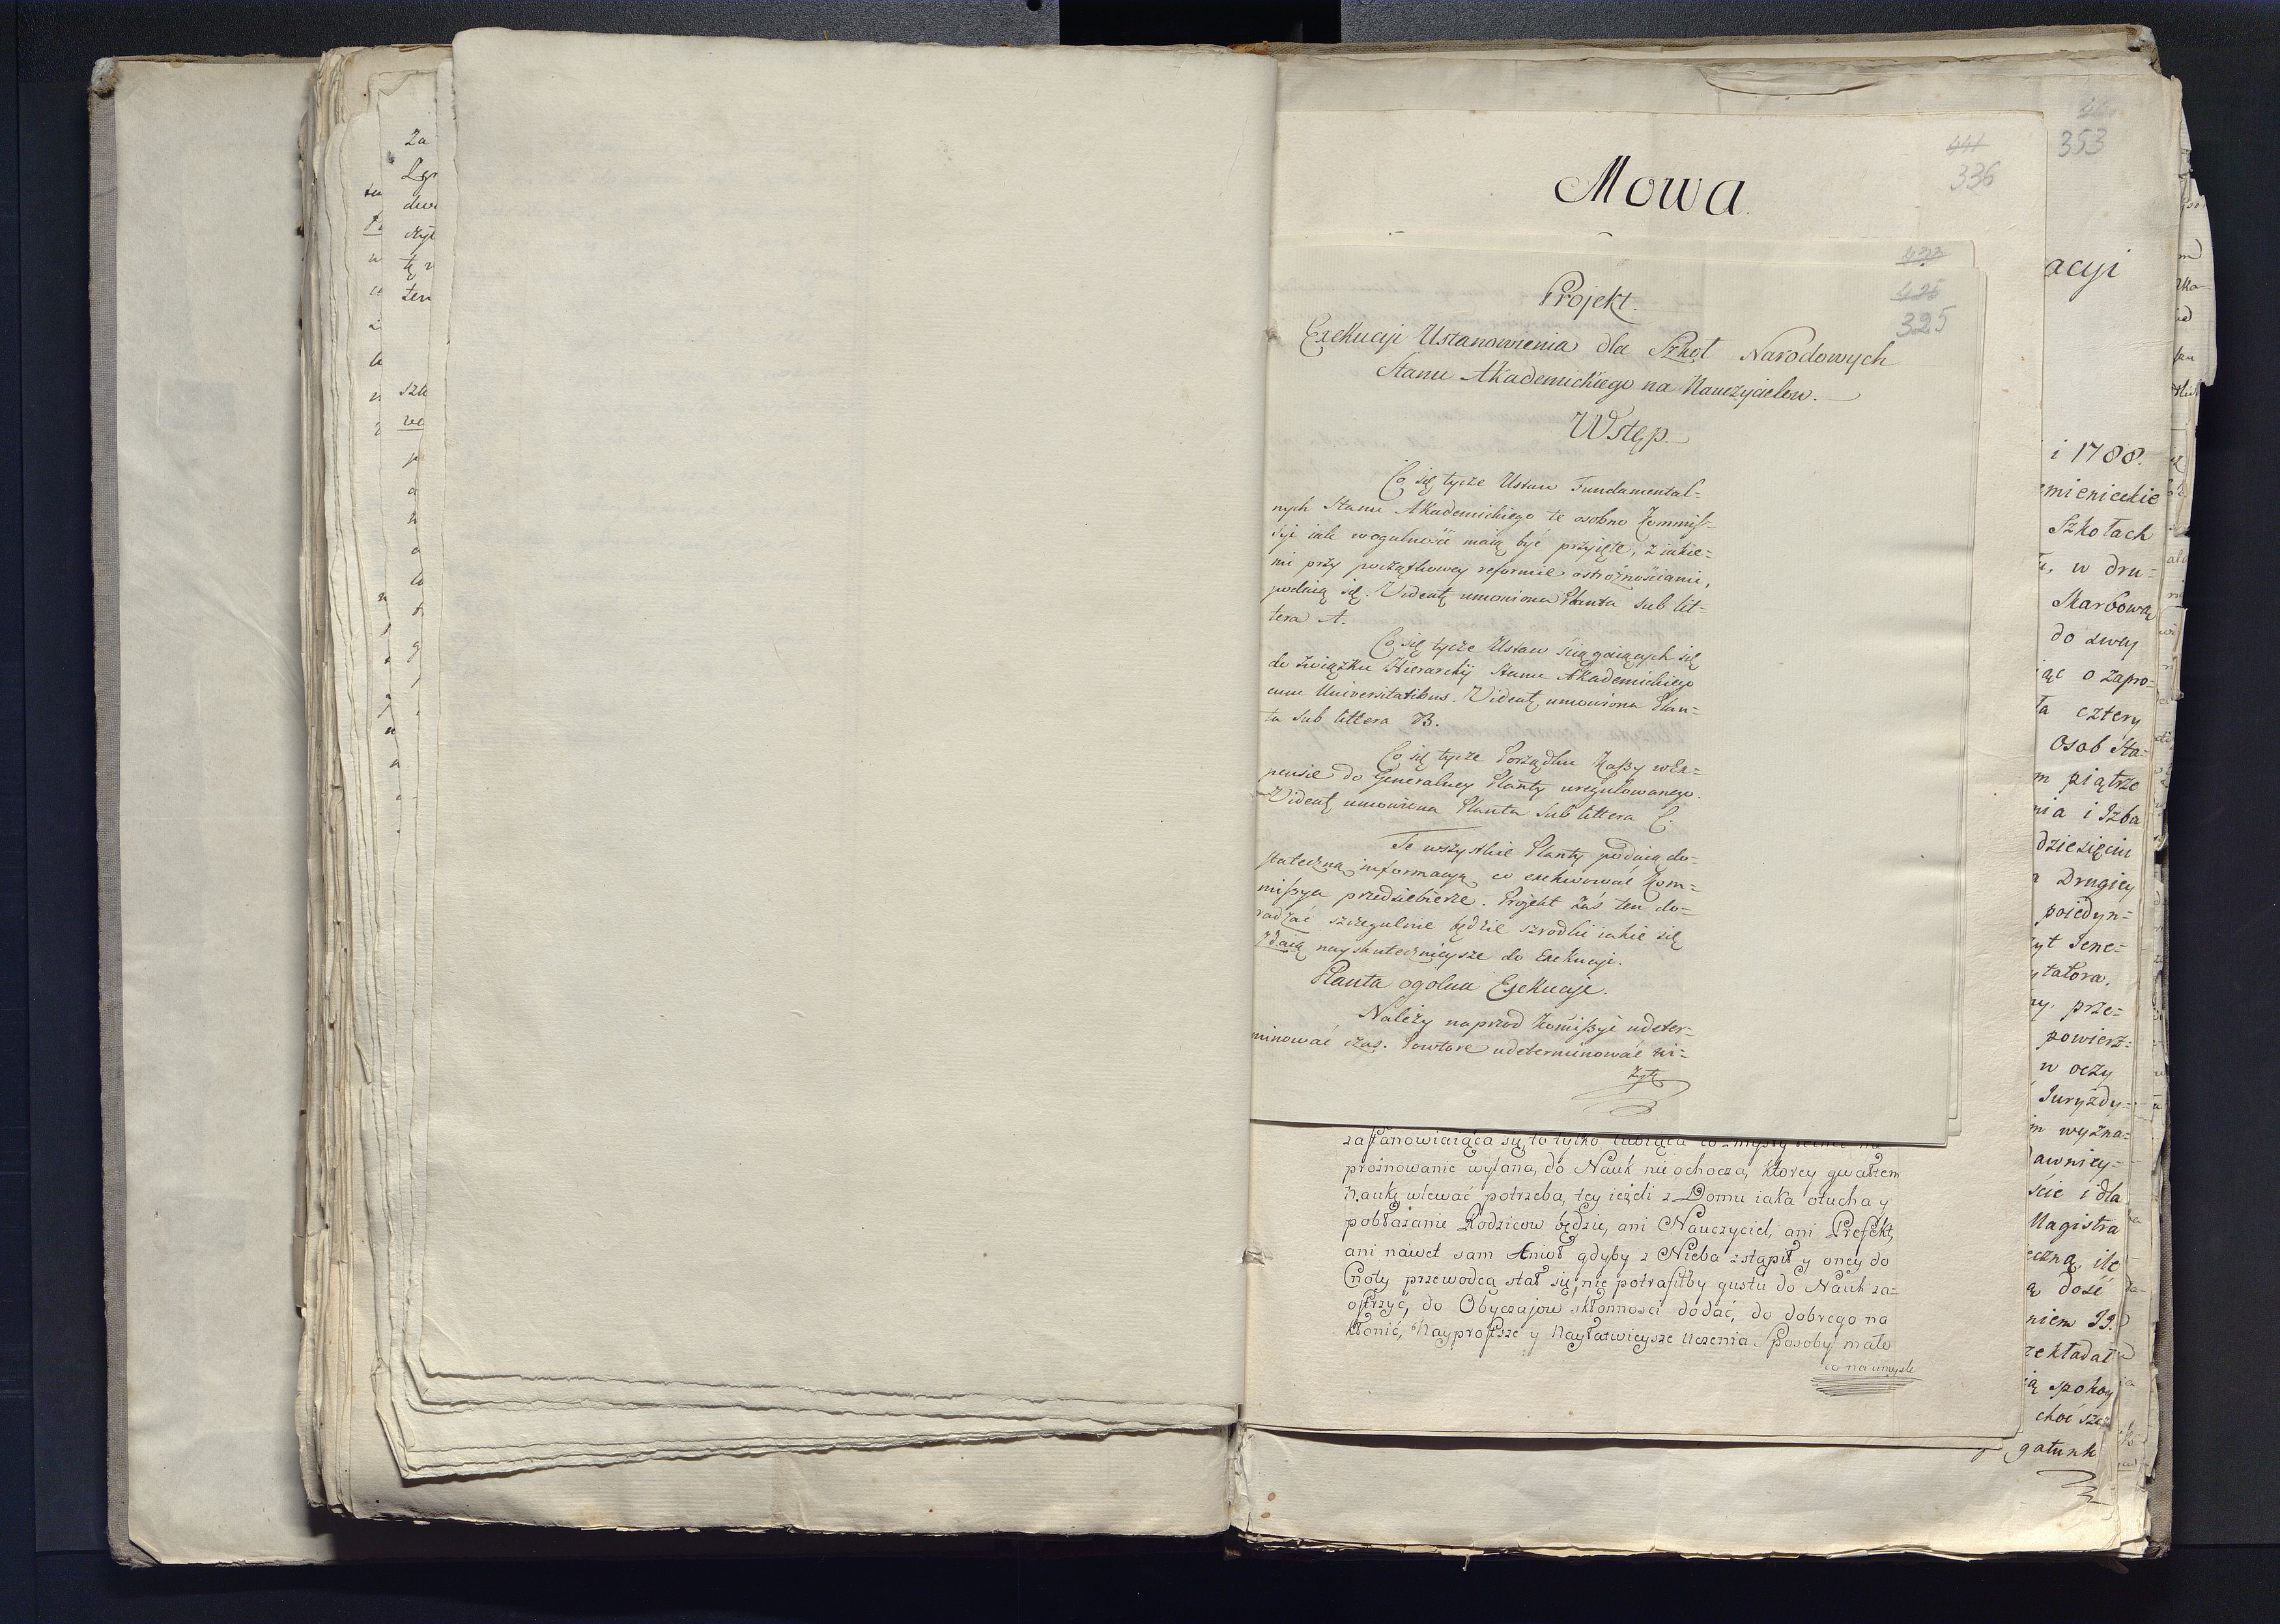 Mowa.
441
336
353
423
425
325
Projekt.
Exekucyi Ustanowienia dla Szkoł Narodowych
Stanu Akademickiego na Nauczycielow.
Wstęp.
Co się tycze Ustaw Fundamental=
nych Stanu Akademickiego te osobno Kommis=
syi iak wogulności maią być przyięte, z iakie=
mi przy początkowey reformie ostrożnościami,
podaią się. Videat umowiona Planta sub lit=
tera A.
Co się tycze Ustaw ściągaiących się
do związku Hierarchij Stanu Akademickiego
cum Universitatibus. Videat umowiona Plan=
ta sub littera B.
Co się tycze Porządku Kassy w Ex=
pensie do Generalney Planty uregulowanego.
Videat umowiona Planta sub littera C.
Te wszystkie Planty podaią do=
stateczną informacyą co exekwować Kom=
missya przedsiebierze. Projekt zaś ten do=
radzać szczegulnie będzie szrodki iakie się
zdaią nayskutecznieysze do Exekucyi.
Planta ogolna Exekucyi.
Należy naprzod Komissyi udeter=
minować czas. Powtore udeterminować wi=
zytę
zastanowiaiąca się, to tylko lubiąca co zmysły
prożnowanie wylana, do Nauk nie ochocza, ktorey gwałtem
Naukę wlewać potrzeba, tey ieżeli z Domu iaka otucha y
pobłażanie Rodzicow będzie, ani Nauczyciel, ani Prefekt,
ani nawet sam Anioł gdyby z Nieba zstąpił y oney do
Cnoty przewodcą stał się, nie potrafiłby gustu do Nauk za=
ostrzyć, do Obyczajow skłonności dodać, do dobrego na
kłonić, Nayprostsze y Nayłatwieysze Uczenia Sposoby mało
co na umyśle
acyi
i 1788.
mienieckie
Szkołach
w dru=
Skarbową
do dwey
o zapro=
ła cztery
Osob Sta=
m piątrze
nia i Izba
dziesięciu
Drugiey
poiedyn=
zyt Jene=
ytatora.
ny. prze=
powierz=
w oczy
Juryzdy=
m wyzna=
dawniey=
ście i dla
Magistra
eczną, ile
ą dość
niem JJ.
zekładał
ią spokoy
choć szcz
gatunk